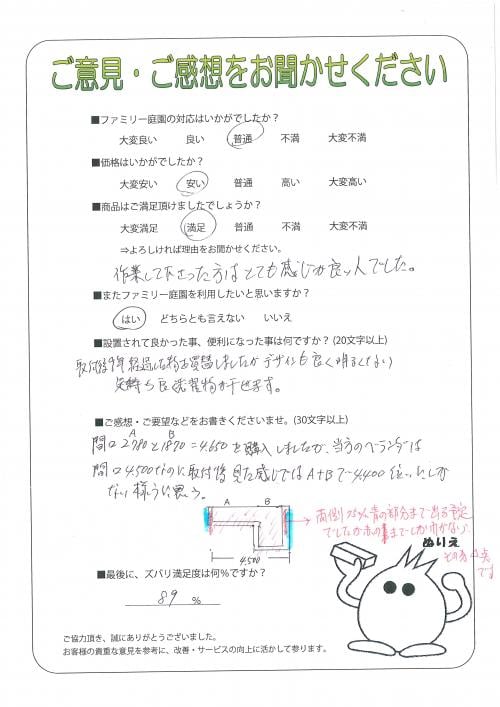 ご意見・ご感想をお聞かせください
■ファミリー庭園の対応はいかがでしたか？
大変良い 良い 普通 不満 大変不満
■価格はいかがでしたか？
大変安い 安い 普通 高い 大変高い
■商品はご満足頂けましたでしょうか？
大変満足 満足 普通 不満 大変不満
⇒よろしければ理由をお聞かせください。
作業して下さった方はとても感じが良い人でした。
■またファミリー庭園を利用したいと思いますか？
はい どちらとも言えない いいえ
■設置されて良かった事、便利になった事は何ですか？(20文字以上)
取付後9年経過した物を買替しましたがデザインも良く明るくなり
気持ち良く洗濯物が干せます。
■ご感想・ご要望などをお書きくださいませ。(30文字以上)
A B
間口2780と1870=4.650を購入しましたが、当方のベランダは
間口4.500なのに取付後見た感じではA+Bで4.400位しか
ない様に思う。
A B
両側 青の部分まで出る予定
でしたが赤の までしか
4.500
ぬりえ
その分 点
です
■最後に、ズバリ満足度は何％ですか？
89 %
ご協力頂き、誠にありがとうございました。
お客様の貴重な意見を参考に、改善・サービスの向上に活かして参ります。